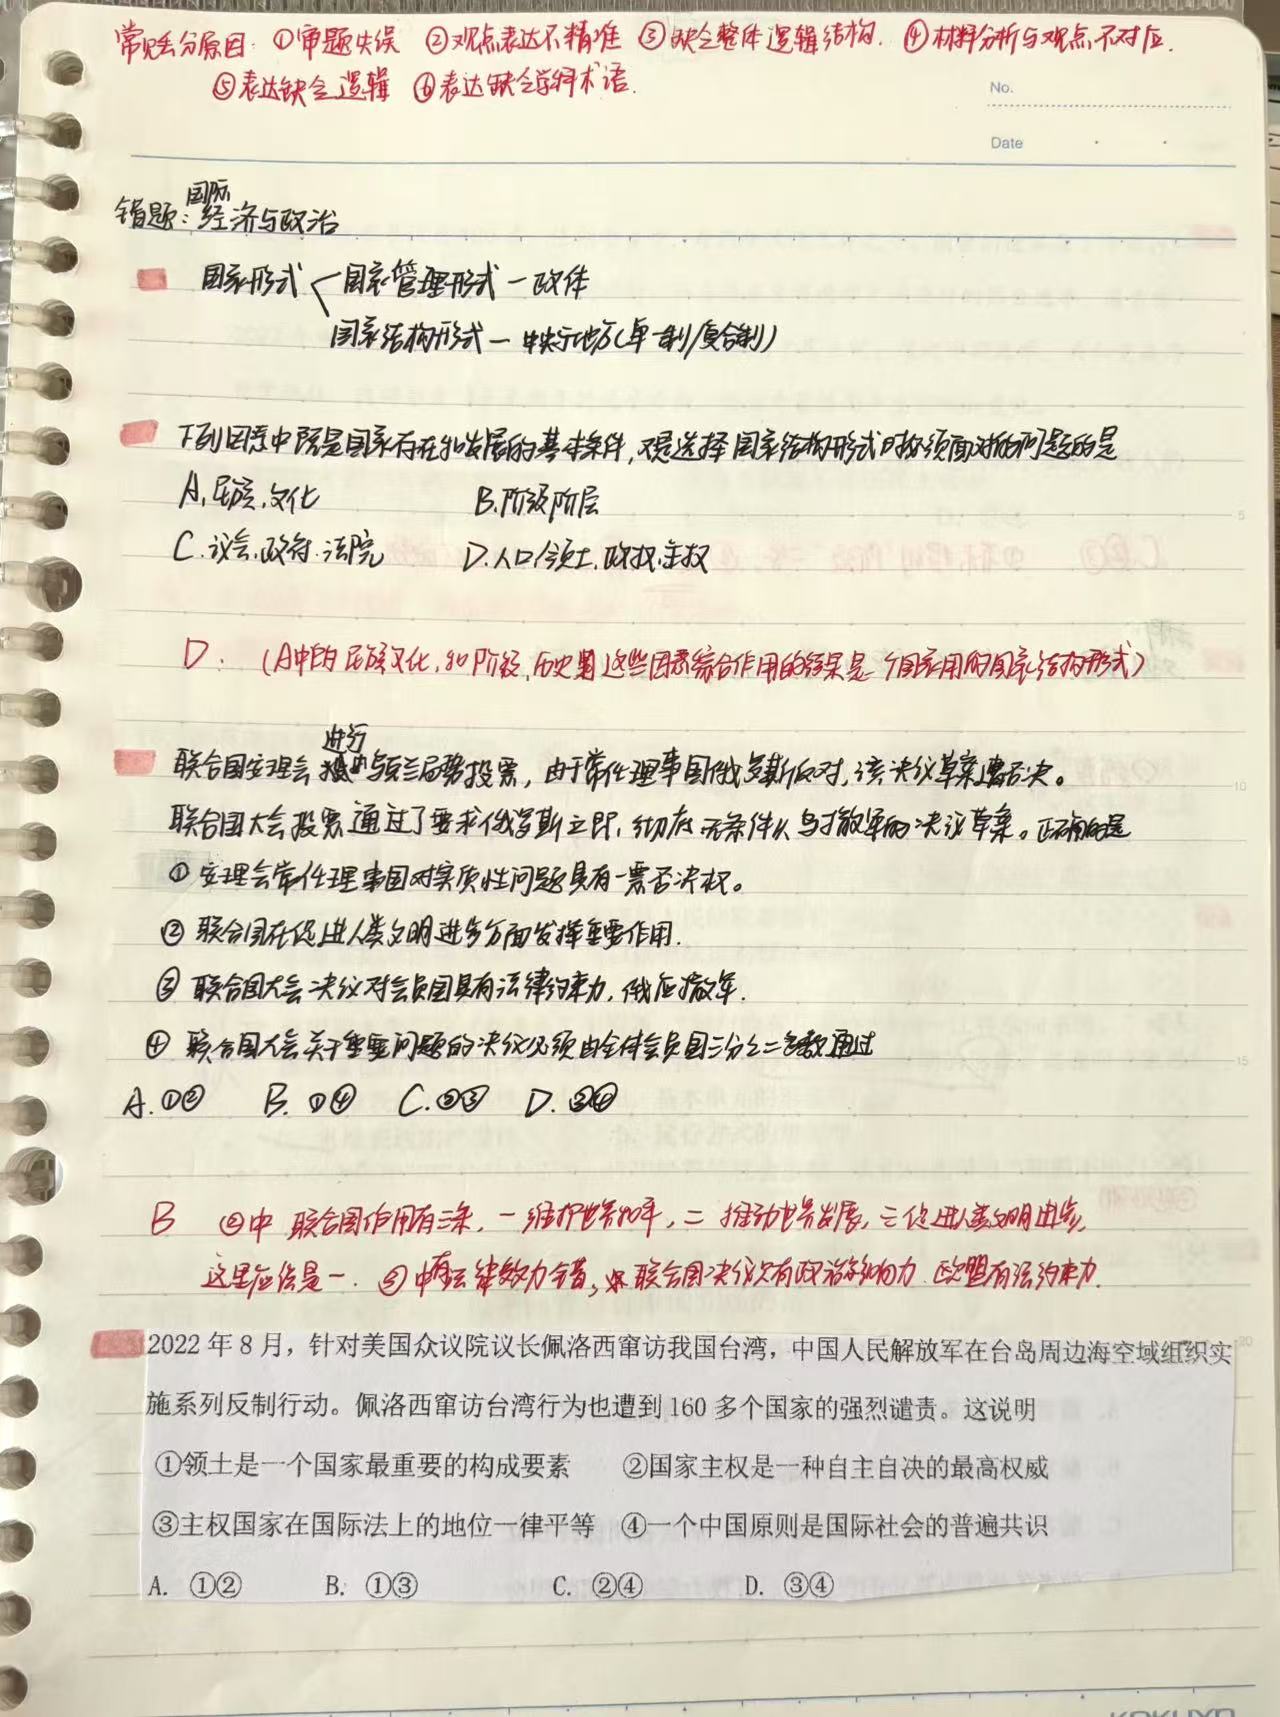 常见丢分原因:①审题失误 ②观点表达不精准 ③缺乏整体逻辑结构. ④材料分析与观点不对应.
⑤表达缺乏逻辑 ⑥表达缺乏学科术语.
No.
Date
错题:国际经济与政治
国家形式 国家管理形式—政体
国家结构形式—中央与地方(单一制/复合制)
下列因素中既是国家存在和发展的基本条件,又是选择国家结构形式时必须面对的问题的是
A.民族.文化 B.阶级阶层
C.议会.政府.法院 D.人口.领土.政权.主权
D. (A中的民族文化,和阶级,历史 这些因素综合作用的结果是一个国家用的国家结构形式)
联合国安理会进行 乌克兰局势投票,由于常任理事国俄罗斯反对,该决议草案遭否决。
联合国大会投票通过了要求俄罗斯立即,彻底无条件从乌撤军的决议草案。正确的是
①安理会常任理事国对实质性问题具有一票否决权。
②联合国在促进人类文明进步方面发挥重要作用.
③联合国大会决议对会员国具有法律约束力,俄应撤军.
④联合国大会关于重要问题的决议必须由全体会员国三分之二多数通过
A.①② B.①④ C.②③ D.③④
B ②中 联合国作用有三条,一维护世界和平,二推动世界发展,三促进人类文明进步,
这里应该是一. ③中有法律效力错, 联合国决议只有政治影响力.欧盟有法约束力.
2022 年 8 月，针对美国众议院议长佩洛西窜访我国台湾，中国人民解放军在台岛周边海空域组织实
施系列反制行动。佩洛西窜访台湾行为也遭到 160 多个国家的强烈谴责。这说明
①领土是一个国家最重要的构成要素 ②国家主权是一种自主自决的最高权威
③主权国家在国际法上的地位一律平等 ④一个中国原则是国际社会的普遍共识
A. ①② B. ①③ C. ②④ D. ③④